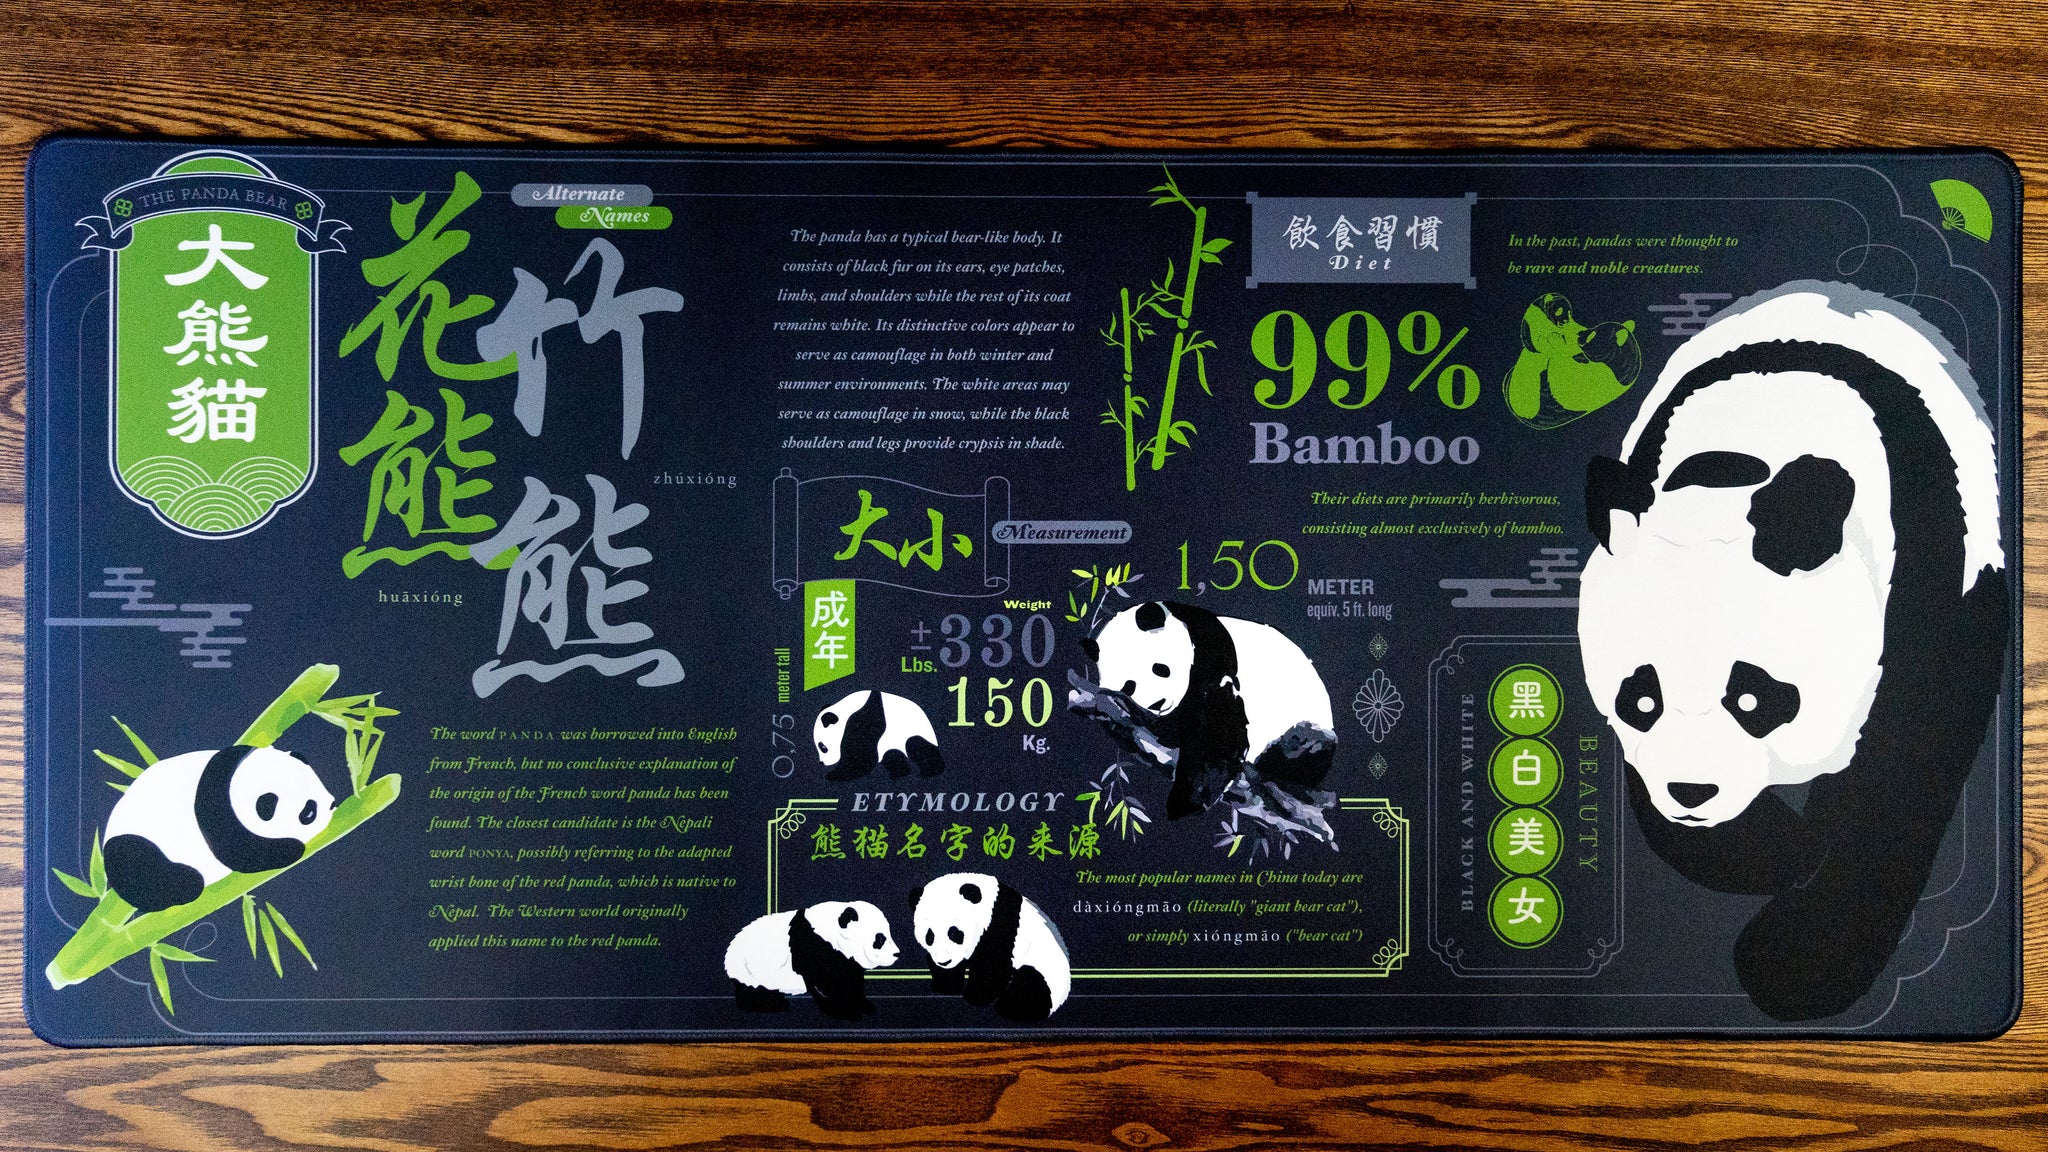 THE PANDA BEAR
大熊貓
Alternate
Names
花熊
huāxióng
竹熊
zhúxióng
The word PANDA was borrowed into English
from French, but no conclusive explanation of
the origin of the French word panda has been
found. The closest candidate is the Nepali
word PONYA, possibly referring to the adapted
wrist bone of the red panda, which is native to
Nepal. The Western world originally
applied this name to the red panda.
The panda has a typical bear-like body. It
consists of black fur on its ears, eye patches,
limbs, and shoulders while the rest of its coat
remains white. Its distinctive colors appear to
serve as camouflage in both winter and
summer environments. The white areas may
serve as camouflage in snow, while the black
shoulders and legs provide crypsis in shade.
大小
Measurement
成年
Weight
±330
Lbs.
150
Kg.
0,75 meter tall
1,50
METER
equiv. 5 ft. long
飲食習慣
Diet
99%
Bamboo
Their diets are primarily herbivorous,
consisting almost exclusively of bamboo.
In the past, pandas were thought to
be rare and noble creatures.
ETYMOLOGY
熊猫名字的来源
The most popular names in China today are
dàxióngmāo (literally "giant bear cat"),
or simply xióngmāo ("bear cat")
BLACK AND WHITE
黑白美女
BEAUTY